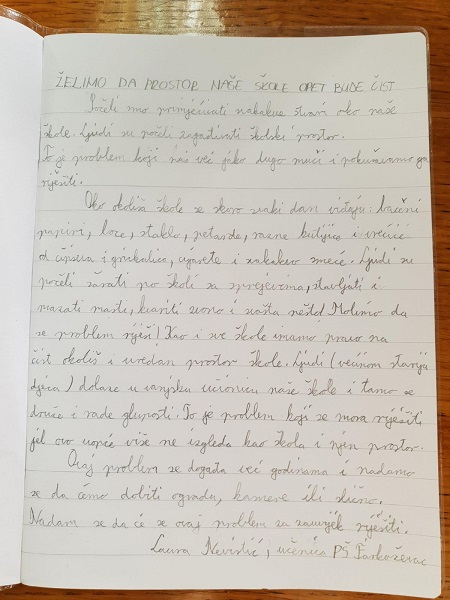 ŽELIMO DA PROSTOR NAŠE ŠKOLE OPET BUDE ČIST
Počeli smo primjećivati nakakve stvari oko naše
škole. Ljudi su počeli zagađivati školski prostor.
To je problem koji nas već jako dugo muči i pokušavamo ga
riješiti.
Oko okoliša škole se skoro svaki dan viđaju: bačeni
papiri, boce, staklo, petarde, razne kutijice i vrećice
od čipseva i grickalica, cigarete i svakakvo smeće. Ljudi su
počeli šarati po školi sa sprejevima, stavljati i
mazati maste, kvariti zvono i svašta nešto! Molimo da
se problem riješi! Kao i sve škole imamo pravo na
čist okoliš i uredan prostor škole. Ljudi (većinom starija
djeca) dolaze u vanjsku učionicu naše škole i tamo se
druže i rade gluposti. To je problem koji se mora riješiti
jel ovo uopće više ne izgleda kao škola i njen prostor.
Ovaj problem se događa već godinama i nadamo
se da ćemo dobiti ogradu, kamere ili slično.
Nadam se da će se ovaj problem za zauvijek riješiti.
Laura Nevistić, učenica PŠ Farkaševac